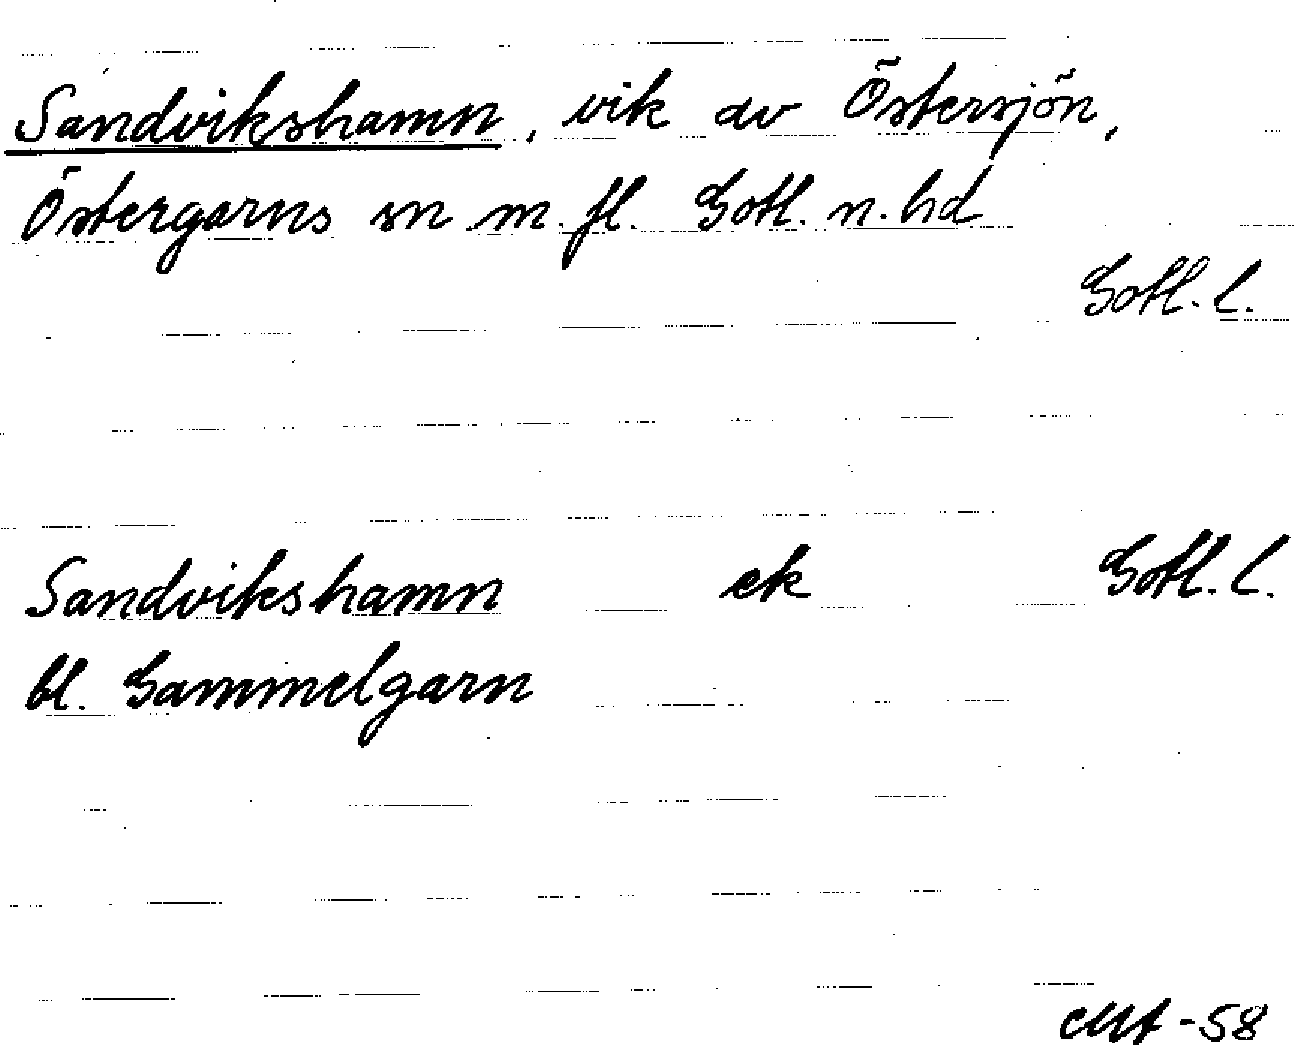 Sandvikshamn, vik av Östersjön,
Östergarns sn m.fl. Gotl. n. hd
Gotl. l.
Sandvikshamn ek Gotl. l.
bl. Gammelgarn
-58